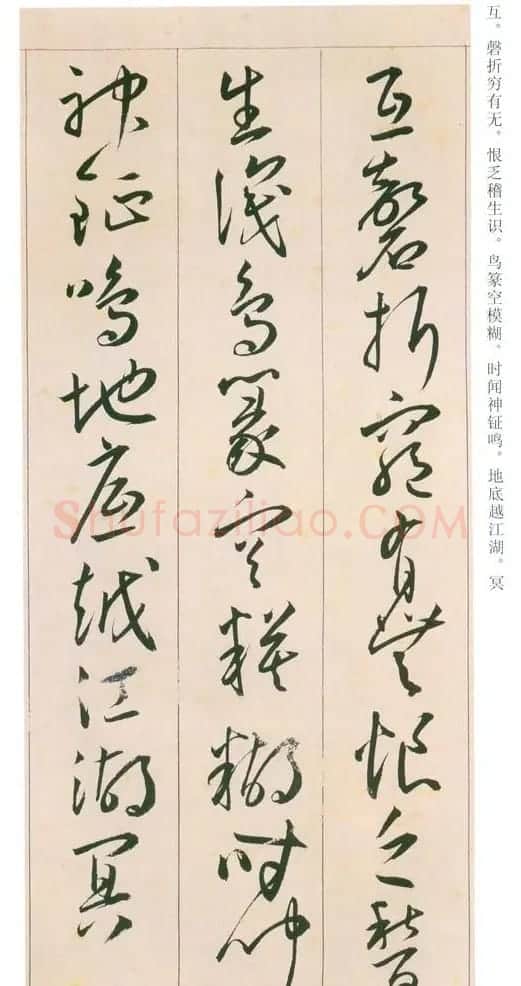 互磬折穷有无恨乏稽
生识鸟篆空模糊时闻
神钲鸣地底越江湖冥
互。磬折穷有无。恨乏稽生识。鸟篆空模糊。时闻神钲鸣。地底越江湖。冥
Shufaziliao.COM